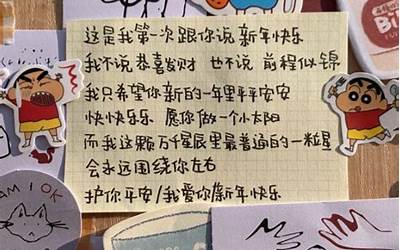 这是我第一次跟你说新年快乐
我不说恭喜发财 也不说 前程似锦
我只希望你新的一年里平平安安
快快乐乐 愿你做一个小太阳
而我这颗万千星辰里最普通的一粒星
会永远围绕你左右
护你平安/我爱你/新年快乐
AM I OK
Bi